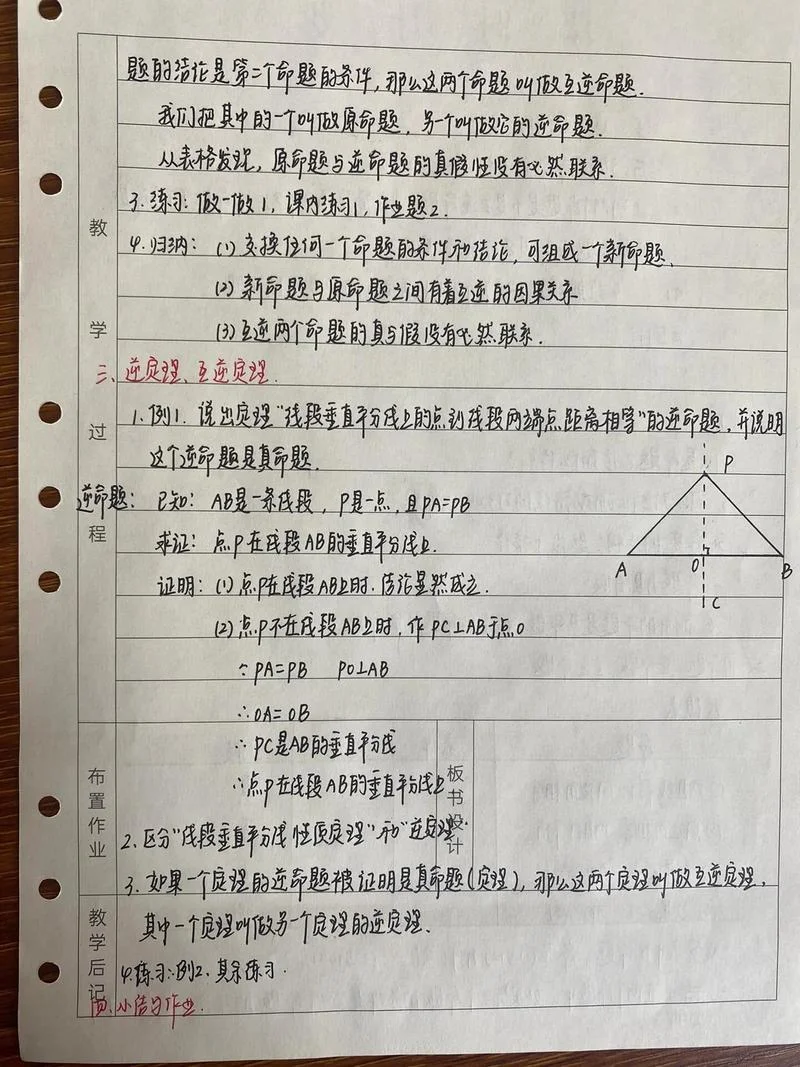 题的结论是第二个命题的条件,那么这两个命题叫做互逆命题.
我们把其中的一个叫做原命题,另一个叫做它的逆命题.
从表格发现,原命题与逆命题的真假性没有必然联系.
3.练习:做一做1,课内练习1,作业题2.
4.归纳:(1)交换任何一个命题的条件和结论,可组成一个新命题.
(2)新命题与原命题之间有着互逆的因果关系
(3)互逆两个命题的真与假没有必然联系.
教学过程
三、逆定理、互逆定理.
1.例1.说出定理“线段垂直平分线上的点到线段两端点距离相等”的逆命题,并说明
这个逆命题是真命题.
逆命题:已知:AB是一条线段,P是一点,且PA=PB
求证:点P在线段AB的垂直平分线上.
证明:(1)点P在线段AB上时.结论显然成立.
(2)点P不在线段AB上时,作PC⊥AB于点O
∵PA=PB PO⊥AB
∴OA=OB
∴PC是AB的垂直平分线
∴点P在线段AB的垂直平分线上
P
A
O
B
C
布置作业
板书设计
2.区分“线段垂直平分线性质定理”和“逆定理”.
3.如果一个定理的逆命题被证明是真命题(定理),那么这两个定理叫做互逆定理,
其中一个定理叫做另一个定理的逆定理.
教学后记
4.练习:例2.其余练习.
四、小结与作业.